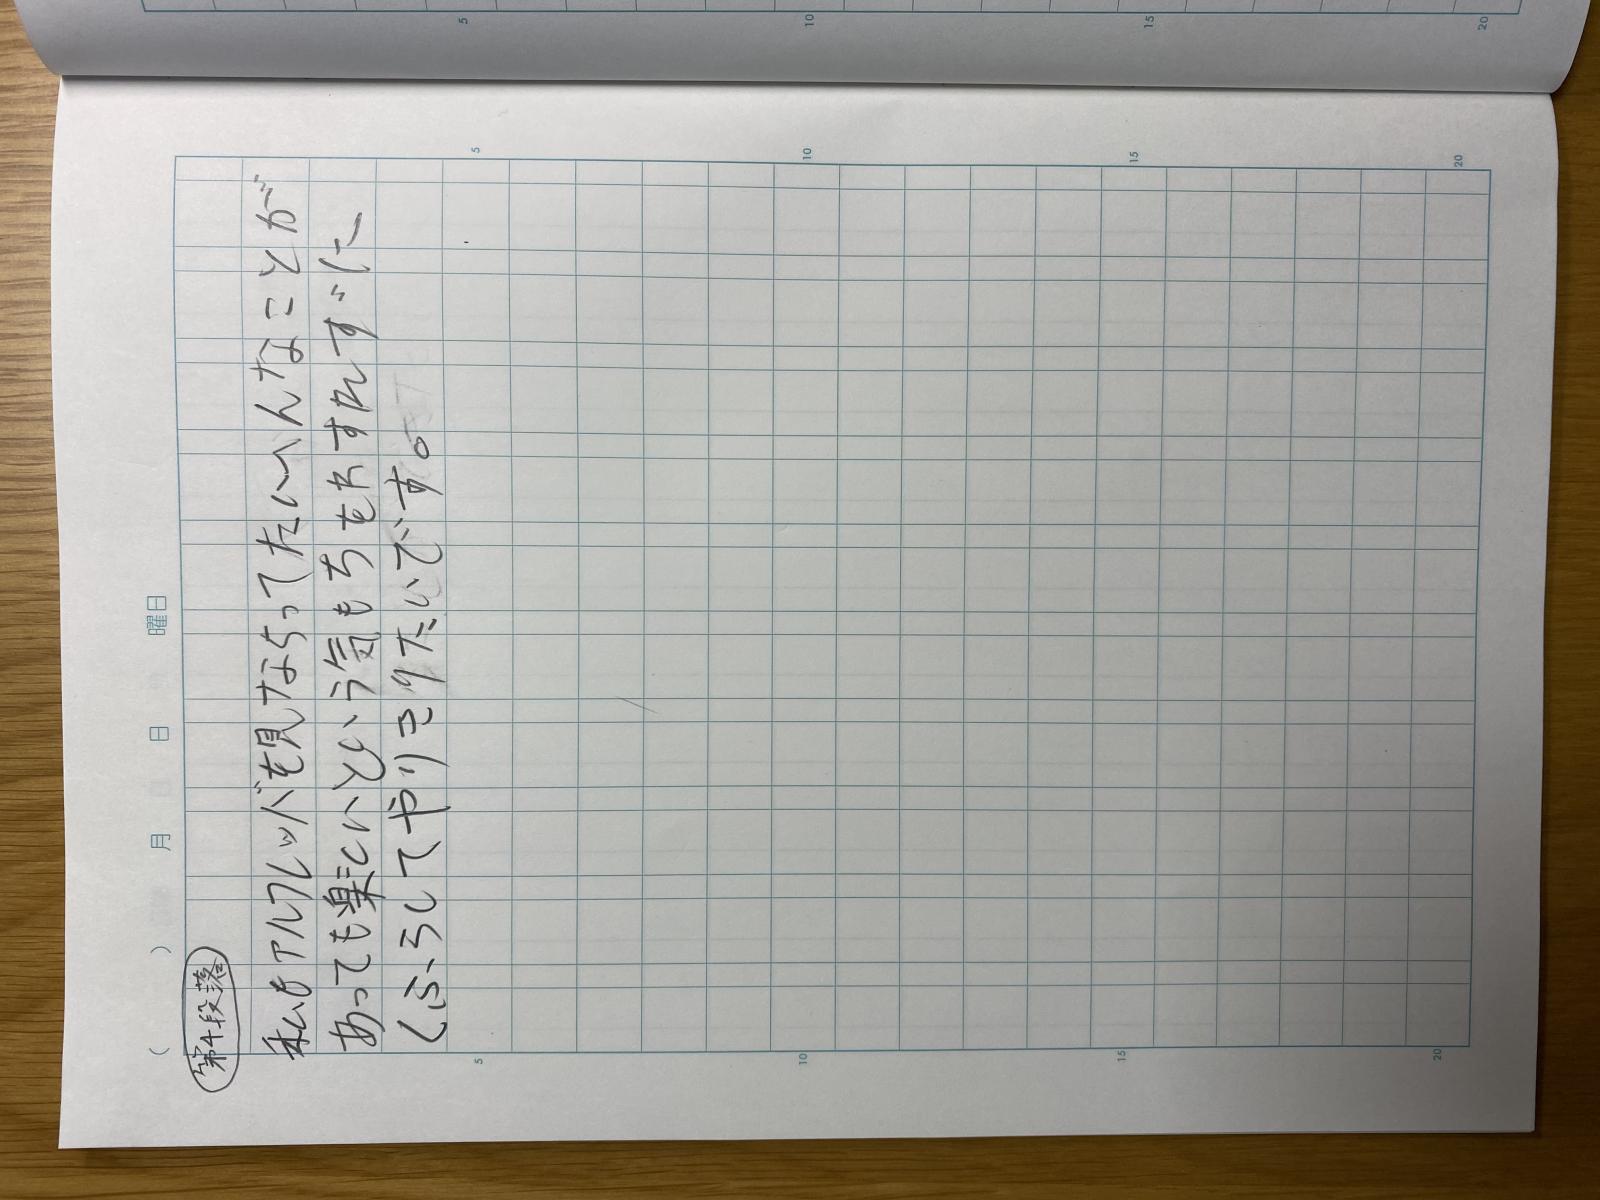 5 10 15 20
( ) 月 日 曜日
5 10 15 20
第4段落
私も を見ならってたいへんなことが
あっても楽しいという気もちをわすれずに
くふうしてやりきりたいです。
5 10 15 20